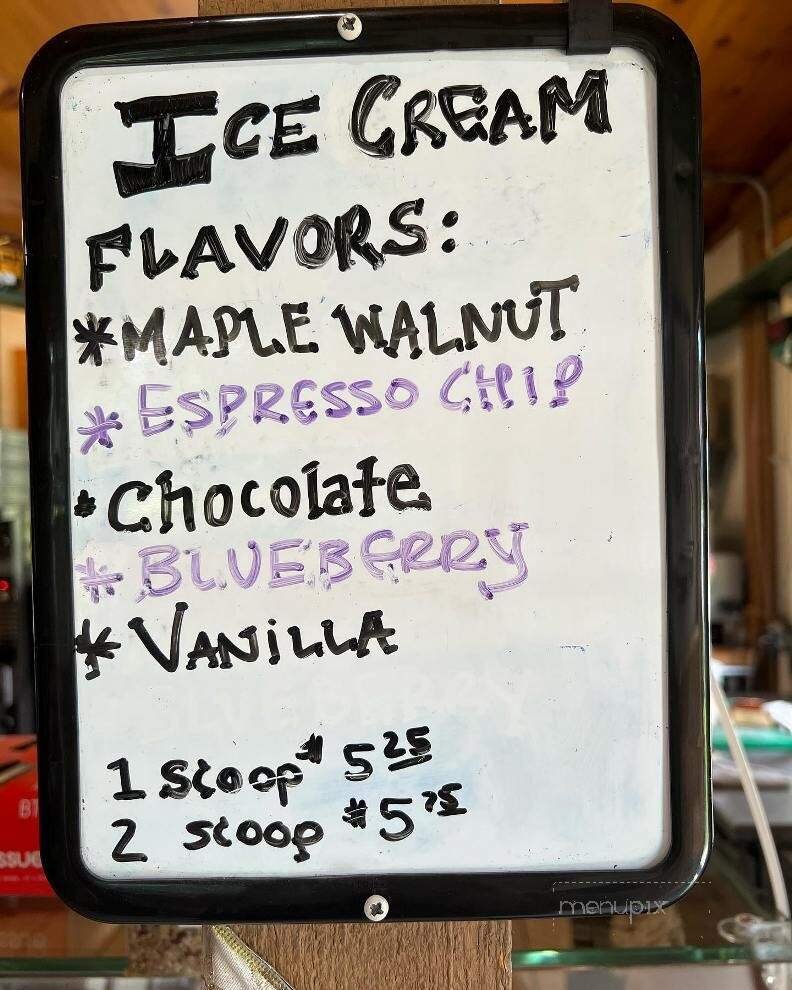 ICE CREAM
FLAVORS:
*MAPLE WALNUT
* ESPRESSO CHIP
*Chocolate
* BLUEBERRY
* VANiLLA
BLUEBERRY
1 Scoop $ 5 25
2 scoop $5 75
menupix